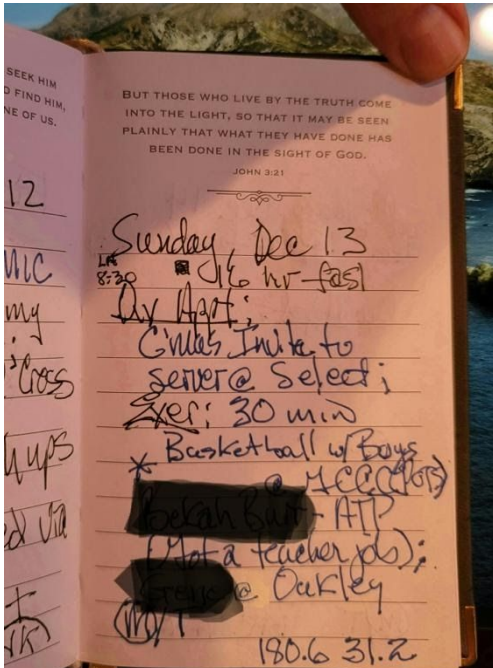 SEEK HIM
D FIND HIM,
NE OF US.
12
NIC
my
Cross
ups
ed via
BUT THOSE WHO LIVE BY THE TRUTH COME
INTO THE LIGHT, SO THAT IT MAY BE SEEN
PLAINLY THAT WHAT THEY HAVE DONE HAS
BEEN DONE IN THE SIGHT OF GOD.
JOHN 3:21
Sunday, Dec 13
8:30 16 hr-fast
Div Appt;
Invite to
server @ Select;
Exer: 30 min
* Basketball w/ Boys
@
- ATP
(Got a teacher job);
@ Oakley
M/T
180.6 31.2